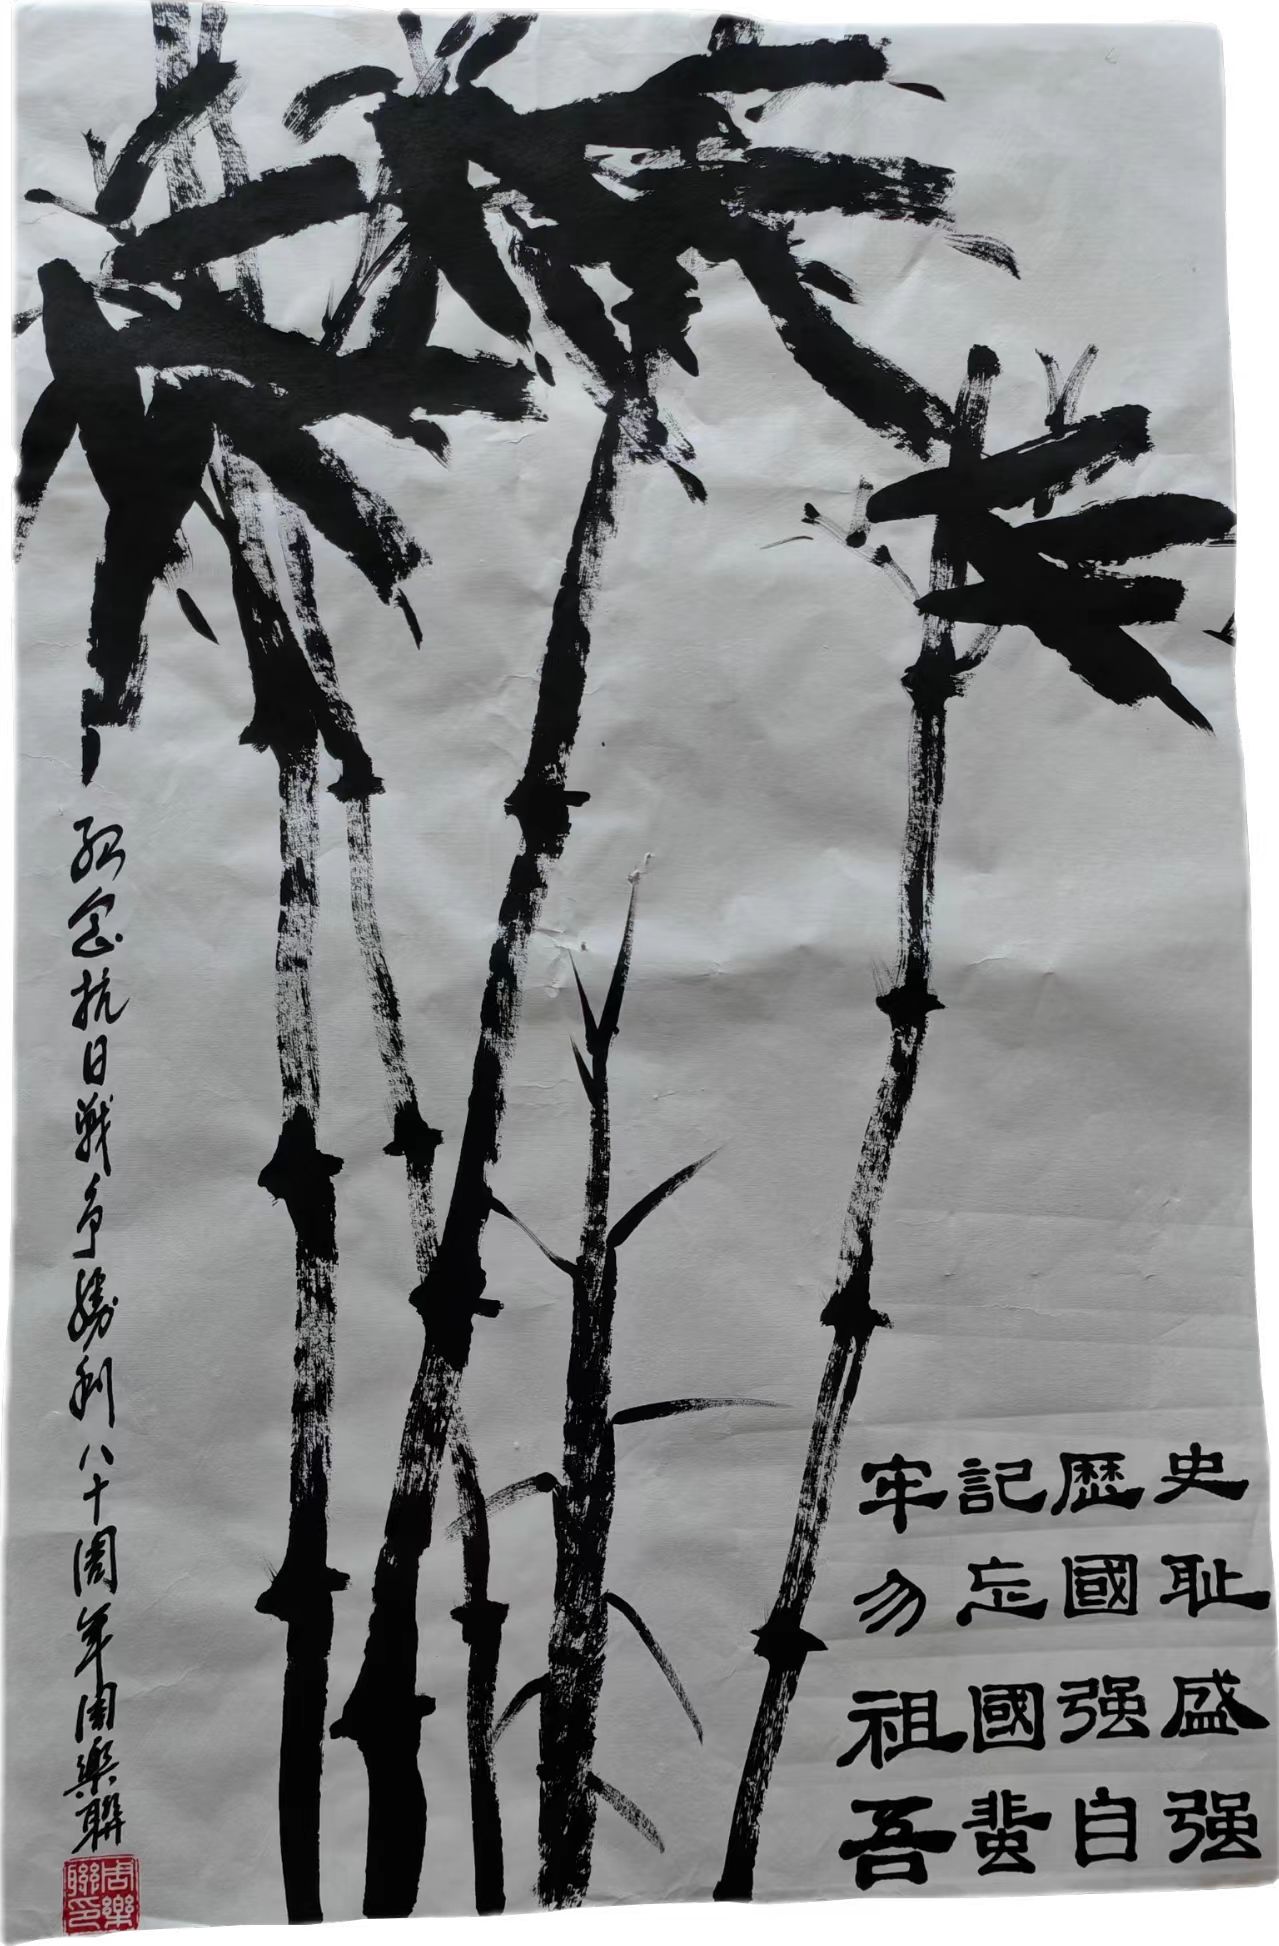 牢記歷史
勿忘國耻
祖國强盛
吾蜚自强
紀念抗日戰爭勝利八十周年周樂聯
周樂聯印